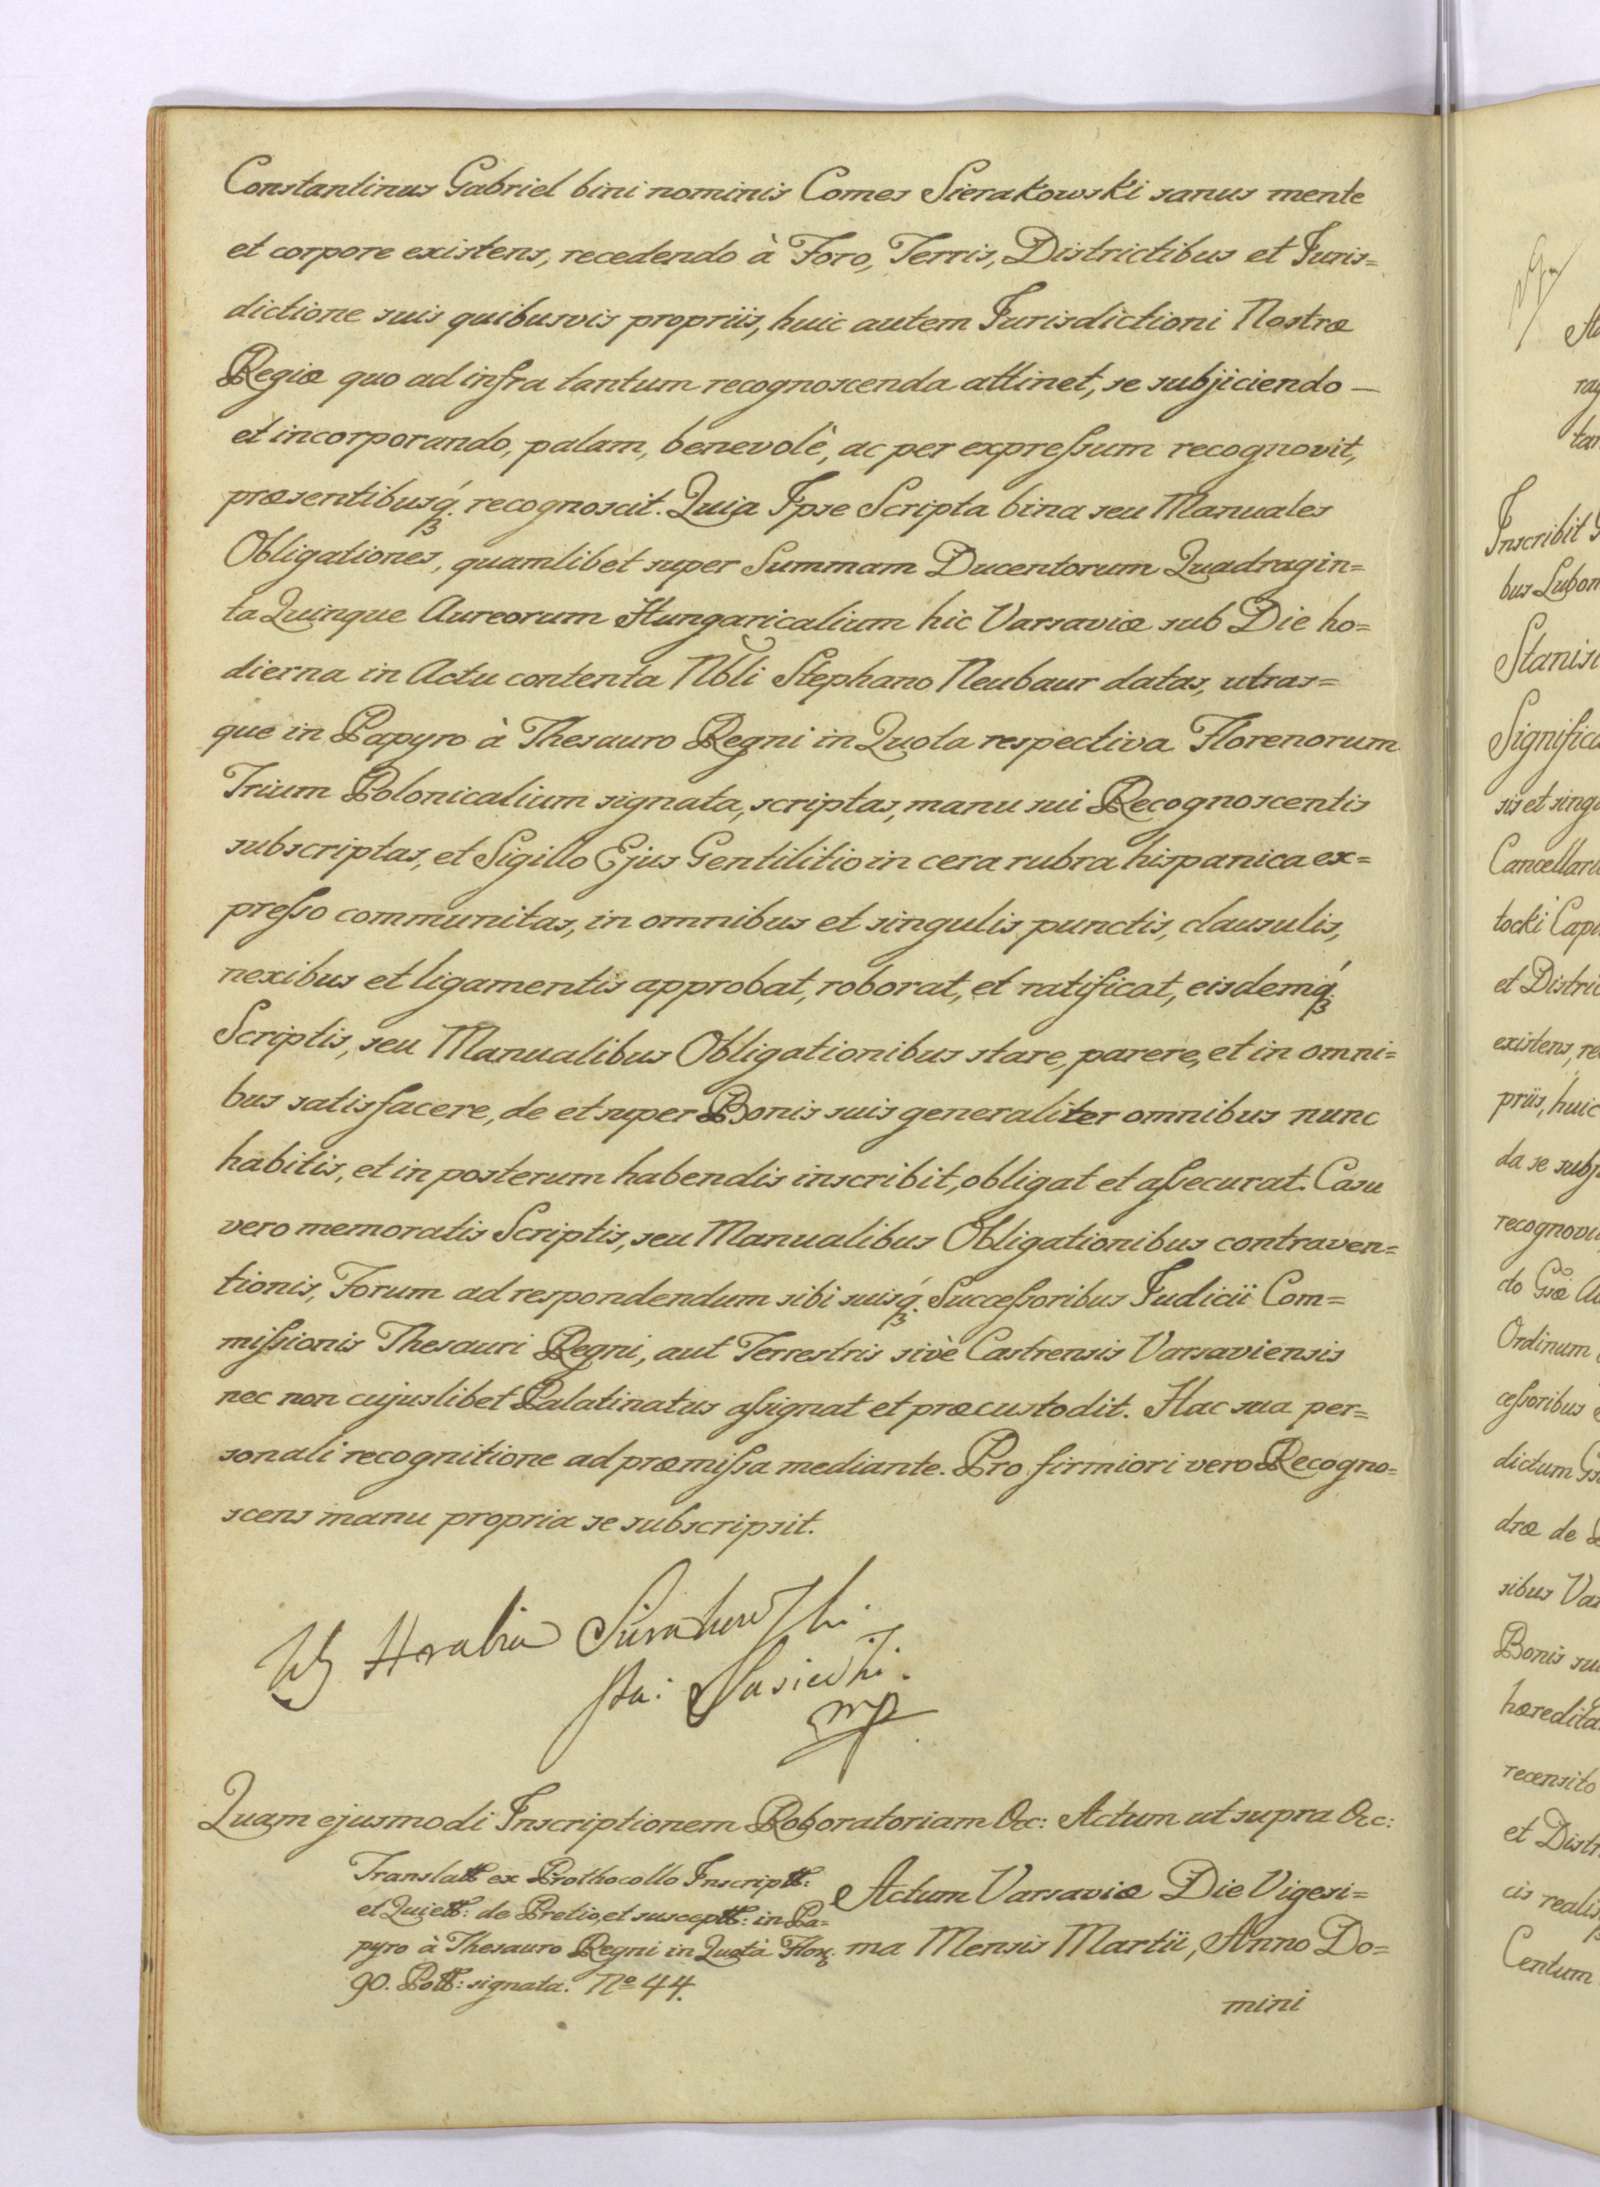 Constantinus Gabriel bini nominis Comes Sierakowski sanus mente
et corpore existens, recedendo à Foro, Terris, Districtibus et Juris=
dictione suis quibusvis propriis, huic autem Jurisdictioni Nostræ
Regiæ quo ad infra tantum recognoscenda attinet, se subjiciendo —
et incorporando, palam, benevolè, ac per expreſsum recognovit,
præsentibusq́ recognoscit. Quia Ipse Scripta bina seu Manuales
Obligationes, quamlibet super Summam Ducentorum Quadragin=
ta Quinque Aureorum Hungaricalium hic Varsaviæ sub Die ho=
dierna in Actu contenta Nbli Stephano Neubaur datas, utras=
que in Papyro à Thesauro Regni in Quota respectiva Florenorum
Trium Polonicalium signata, scriptas, manu sui Recognoscentis
subscriptas, et Sigillo Ejus Gentilitio in cera rubra hispanica ex=
preſso communitas, in omnibus et singulis punctis, clausulis,
nexibus et ligamentis approbat, roborat, et ratificat, eisdemq́
Scriptis, seu Manualibus Obligationibus stare, parere, et in omni=
bus satisfacere, de et super Bonis suis generaliter omnibus nunc
habitis, et in posterum habendis inscribit, obligat et aſsecurat. Casu
vero memoratis Scriptis, seu Manualibus Obligationibus contraven=
tionis, Forum ad respondendum sibi suisq́ Succeſsoribus Judicii Com=
miſsionis Thesauri Regni, aut Terrestris sivè Castrensis Varsaviensis
nec non cujuslibet Palatinatus aſsignat et præcustodit. Hac sua per=
sonali recognitione ad præmiſsa mediante. Pro firmiori vero Recogno=
scens manu propria se subscripsit.
Hrabia Sierakowski
mp
Quam ejusmodi Inscriptionem Roboratoriam &c: Actum ut supra &c:
Translatt ex Prothocollo Inscriptt:
et Quiett: de Pretio, et susceptt: in Pa=
pyro à Thesauro Regni in Quotà Flor.
90. Poltt: signata. No 44.
Actum Varsaviæ Die Vigesi=
ma Mensis Martii, Anno Do=
mini
Inscribit
bus Lubon
Stanis
Significa
sis et singu
Cancellari
tocki Cap
et Distric
existens, re
priis, huic
da se subj
recognovi
do Gsæ
Ordinum
ceſsoribus
dictum
dræ de
sibus Va
Bonis su
hæredita
recensito
et Distr
cis realis
Centum